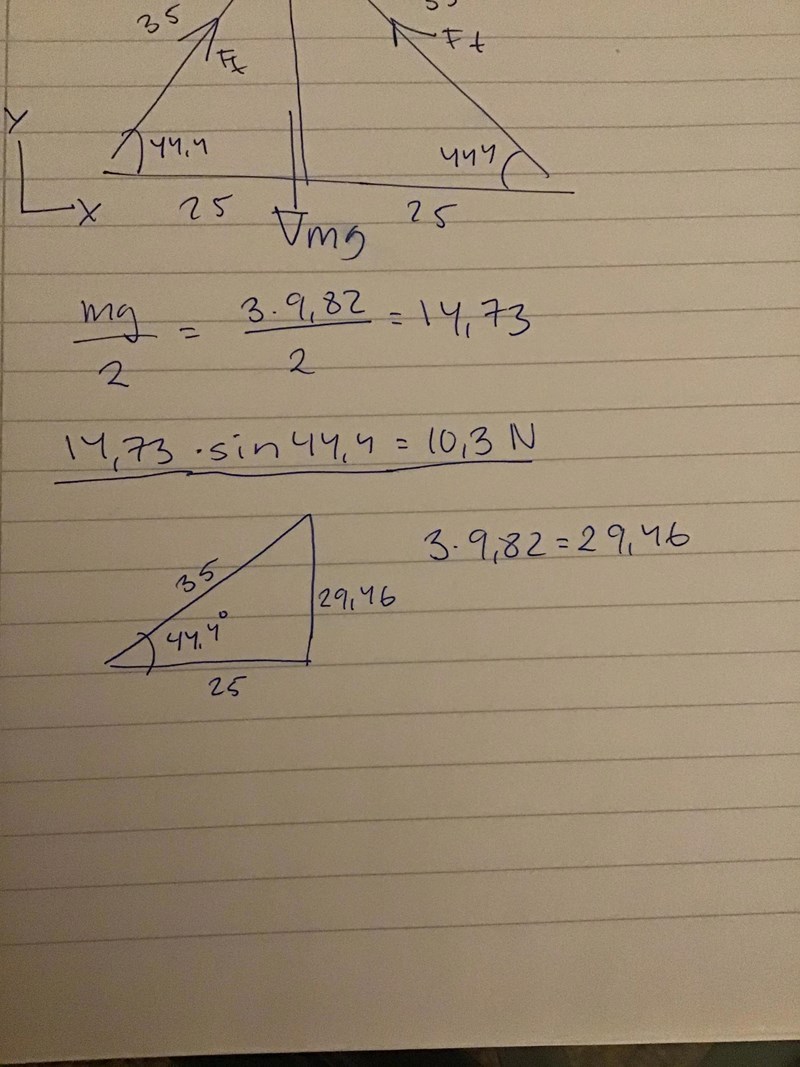 35
Ft
Ft
Y
44,4
444
X
25
25
mg
mg/2 = 3·9,82/2 = 14,73
14,73 · sin 44,4 = 10,3 N
3·9,82 = 29,46
35
29,46
44,4°
25